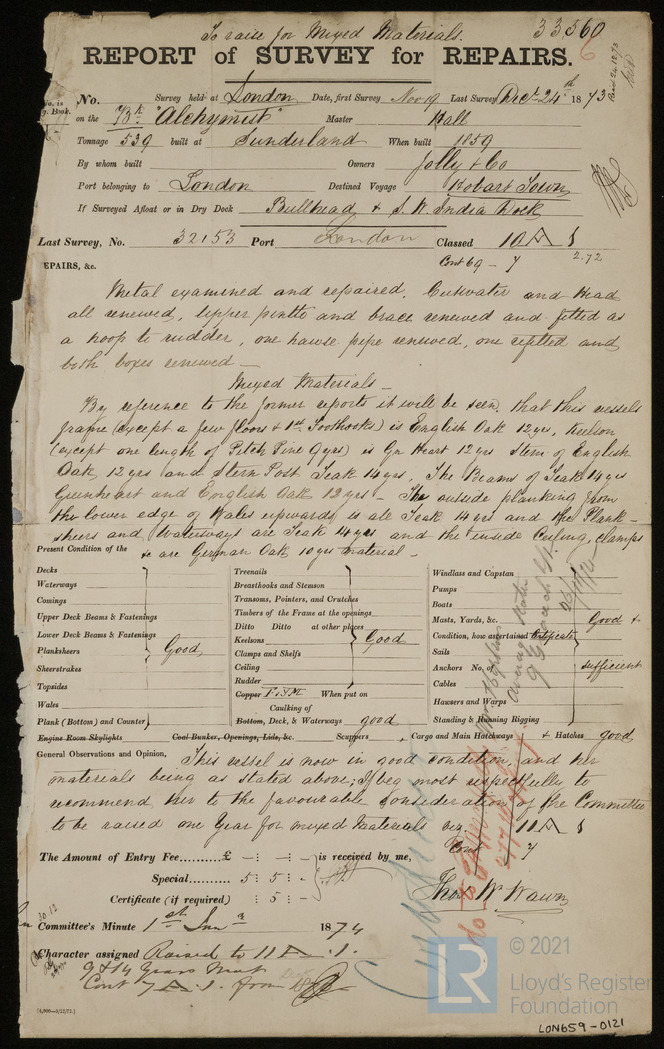 To raise for Mixed Materials. 33560
6
REPORT of SURVEY for REPAIRS.
No. Survey held at London Date, first Survey Nov 19 Last Survey Decr 24th 1873
on the Bk "Alchymist" Master Hall
Tonnage 539 built at Sunderland When built 1859
By whom built Owners Jolly & Co
Port belonging to London Destined Voyage Hobart Town
If Surveyed Afloat or in Dry Dock Bullhead & S. W. India Dock
Last Survey, No. 32153 Port London Classed 10 A 1
Cont 69 - 7 2.72
EPAIRS, &c.
Metal examined and repaired, Cutwater and Head
all renewed, upper pintle and brace renewed and fitted as
a hoop to rudder, one hawse pipe renewed, one refitted and
both boxes renewed —
Mixed Materials —
By reference to the former reports it will be seen, that this vessels
frame (except a few floors & 1st Foothooks) is English Oak 12 yrs, Keelson
(except one length of Pitch Pine 9 yrs) is Gn Heart 12 yrs Stem of English
Oak 12 yrs and Stern Post Teak 14 yrs. The Beams of Teak 14 yrs
Greenheart and English Oak 12 yrs — The outside planking from
the lower edge of Wales upwards is all Teak 14 yrs and the Plank-
sheers and Waterways are Teak 14 yrs and the inside Ceiling, clamps
& are German Oak 10 yrs material —
Present Condition of the
Decks Treenails Windlass and Capstan
Waterways Breasthooks and Stemson Pumps
Comings Transoms, Pointers, and Crutches Boats
Upper Deck Beams & Fastenings Timbers of the Frame at the openings Masts, Yards, &c. Good &
Lower Deck Beams & Fastenings Ditto Ditto at other places Condition, how ascertained Certificate
Planksheers Good Keelsons Good Sails
Sheerstrakes Clamps and Shelfs Anchors No. of sufficient
Topsides Ceiling Cables
Wales Rudder Hawsers and Warps
Plank (Bottom) and Counter Copper F&YM When put on Standing & Running Rigging
Caulking of
Bottom, Deck, & Waterways good
Engine Room Skylights Coal Bunker, Openings, Lids, &c. Scuppers, Cargo and Main Hatchways & Hatches good
General Observations and Opinion, This vessel is now in good condition, and her
materials being as stated above; I beg most respectfully to
recommend her to the favourable consideration of the Committee
to be raised one Year for mixed Materials viz. 11 A 1
Cont 7
The Amount of Entry Fee.........£ - : - : - is received by me,
Special......... 5 : 5 : -
Certificate (if required) : 5 : - Thos W Wawn
30.12
Committee's Minute 1st Jany 1874
Character assigned Raised to 11 A .1.
Cont 7 A .1. from
[4,500—2/12/72.]
© 2021
LR
Lloyd's Register
Foundation
LON659-0121